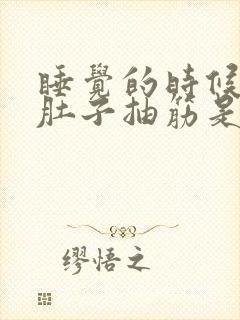 睡覺的時候
肚子抽筋是
繆悟之